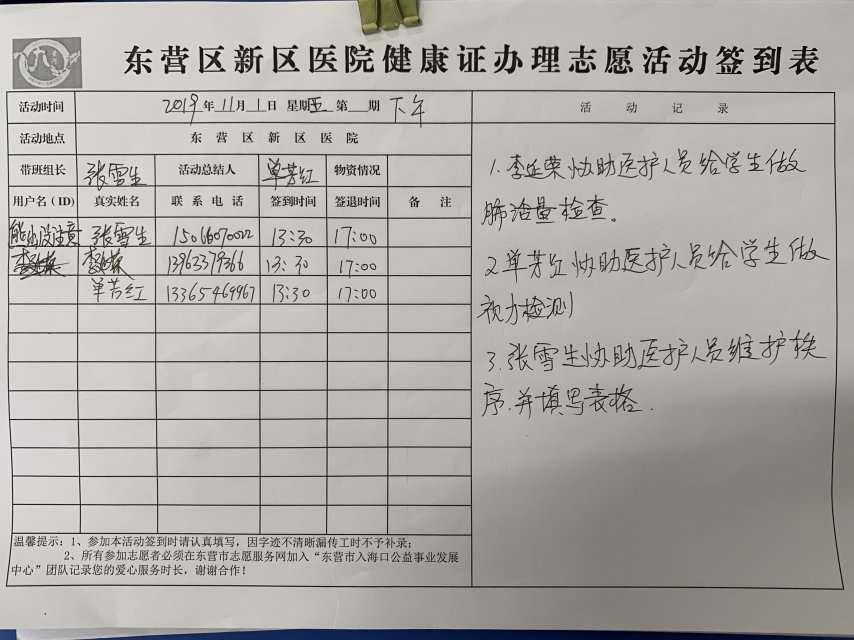 东营区新区医院健康证办理志愿活动签到表
活动时间 2019年11月1日 星期五 第 期 下午
活动地点 东营区新区医院
带班组长 张雪生 活动总结人 单芳红 物资情况
用户名(ID) 真实姓名 联系电话 签到时间 签退时间 备注
张雪生 13:30 17:00
13963379366 13:30 17:00
13365469967 13:30 17:00
温馨提示:1、参加本活动签到时请认真填写,因字迹不清晰漏传工时不予补录;
2、所有参加志愿者必须在东营市志愿服务网加入“东营市入海口公益事业发展
中心”团队记录您的爱心服务时长,谢谢合作!
活动记录
1.李延荣协助医护人员给学生做
肺活量检查。
2.单芳红协助医护人员给学生做
视力检测
3.张雪生协助医护人员维护秩
序.并填写表格.